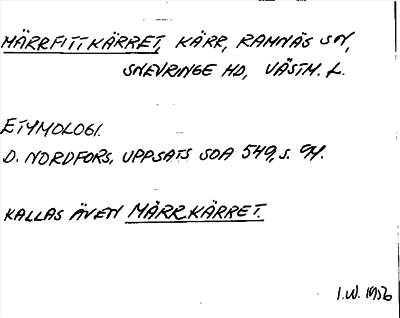 MÄRRFITTKÄRRET, KÄRR, RAMNÄS SN,
SNEVRINGE HD, VÄSTM. L.
ETYMOLOGI.
D. NORDFORS, UPPSATS SOA 549, S. 94.
KALLAS ÄVEN MÄRRKÄRRET.
I.W. 1956